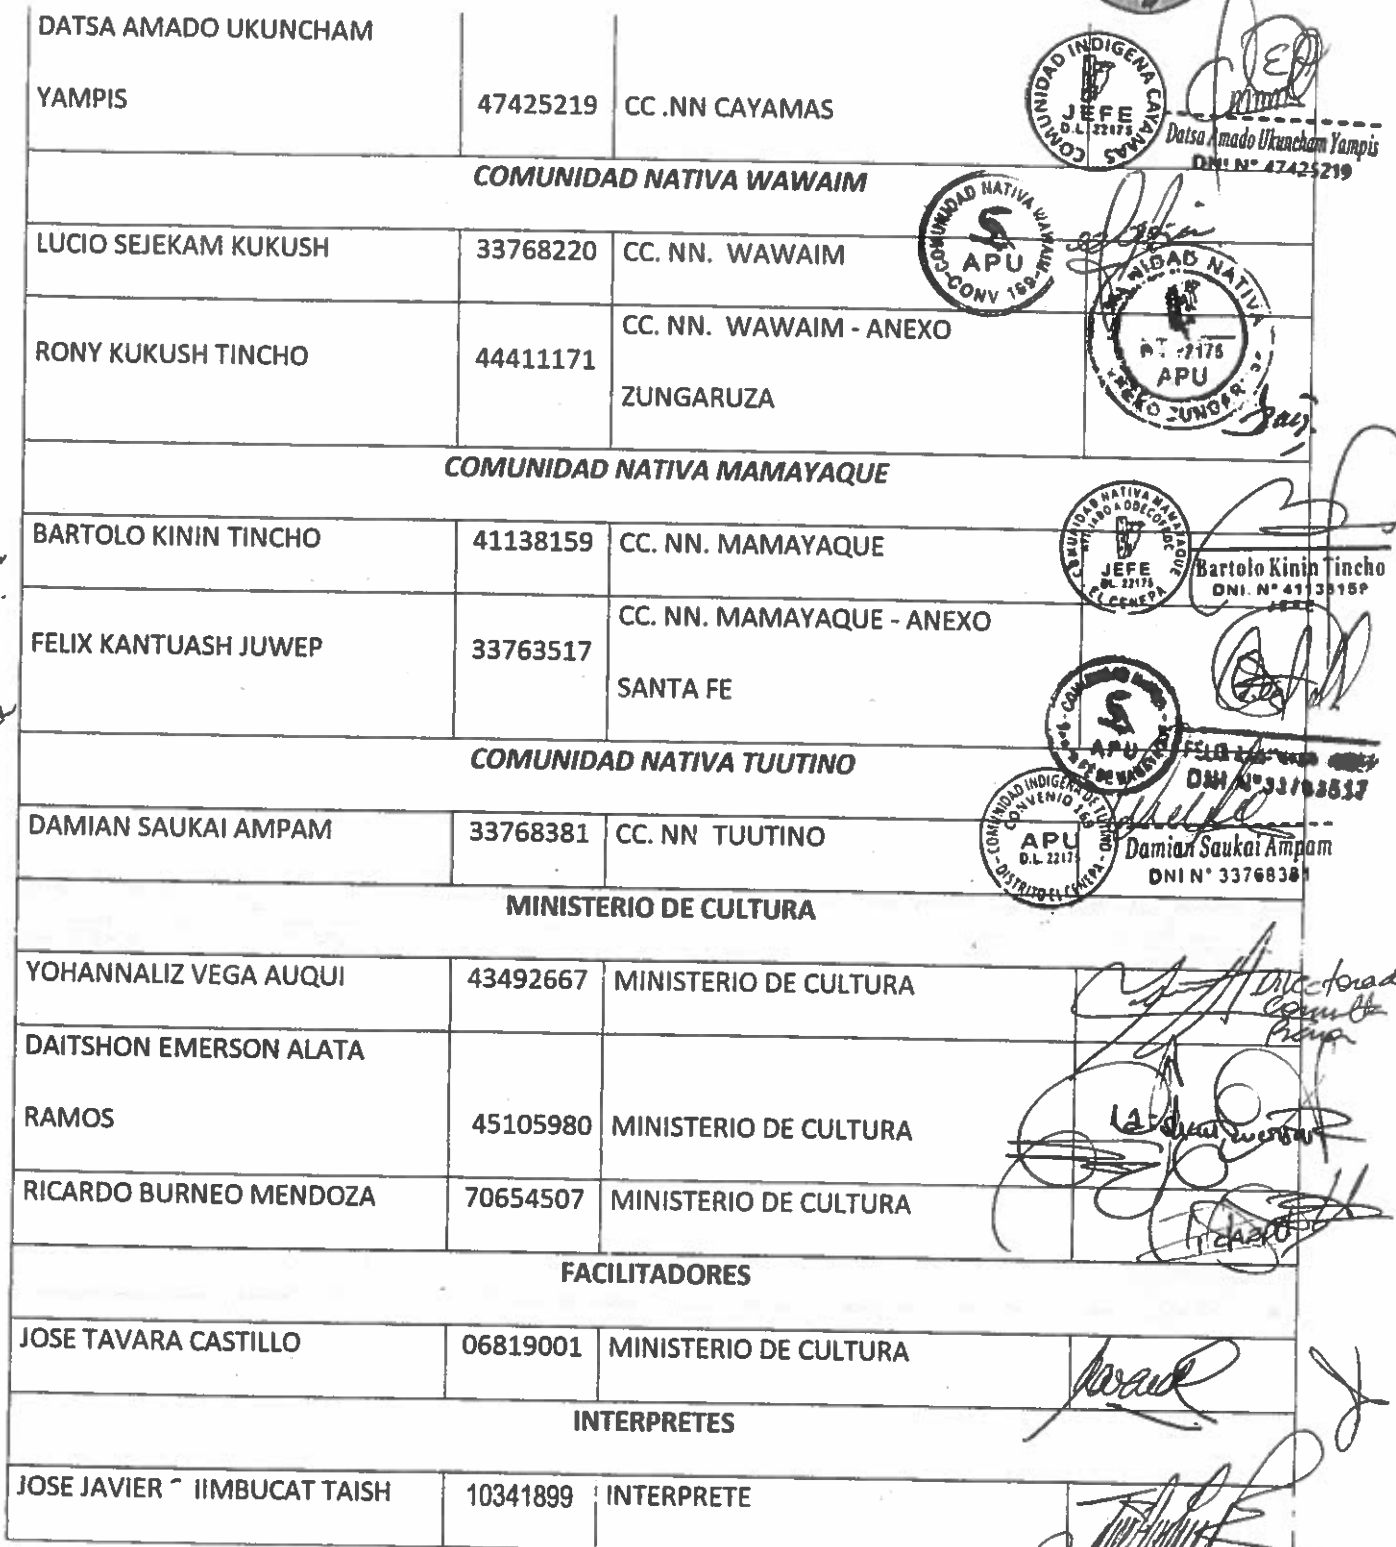 DATSA AMADO UKUNCHAM
YAMPIS 47425219 CC .NN CAYAMAS
COMUNIDAD INDIGENA CAYAMAS
JEFE
D.L. 22175
Datsa Amado Ukuncham Yampis
DNI N° 47425219
COMUNIDAD NATIVA WAWAIM
LUCIO SEJEKAM KUKUSH 33768220 CC. NN. WAWAIM
COMUNIDAD NATIVA WAWAIM
APU
CONV 169
CC. NN. WAWAIM - ANEXO
RONY KUKUSH TINCHO 44411171
ZUNGARUZA
NATIVA
APU
COMUNIDAD NATIVA MAMAYAQUE
BARTOLO KININ TINCHO 41138159 CC. NN. MAMAYAQUE
COMUNIDAD NATIVA MAMAYAQUE
JEFE
DL. 22175
EL CENEPA
Bartolo Kinin Tincho
DNI. N° 41138159
JEFE
CC. NN. MAMAYAQUE - ANEXO
FELIX KANTUASH JUWEP 33763517
SANTA FE
APU
DNI N° 33763517
COMUNIDAD NATIVA TUUTINO
DAMIAN SAUKAI AMPAM 33768381 CC. NN TUUTINO
COMUNIDAD INDIGENA DE TUTINO
CONVENIO 169
APU
D.L. 22175
DISTRITO EL CENEPA
Damian Saukai Ampam
DNI N° 33768381
MINISTERIO DE CULTURA
YOHANNALIZ VEGA AUQUI 43492667 MINISTERIO DE CULTURA
Directora de
Consulta
Previa
DAITSHON EMERSON ALATA
RAMOS 45105980 MINISTERIO DE CULTURA
RICARDO BURNEO MENDOZA 70654507 MINISTERIO DE CULTURA
FACILITADORES
JOSE TAVARA CASTILLO 06819001 MINISTERIO DE CULTURA
INTERPRETES
JOSE JAVIER IIMBUCAT TAISH 10341899 INTERPRETE